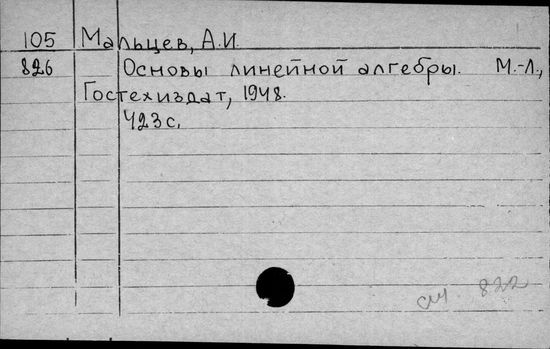 105 Мальцев, А.И.
826 Основы линейной алгебры. М.-Л.,
Гостехиздат, 1948.
423 с.
см. 822